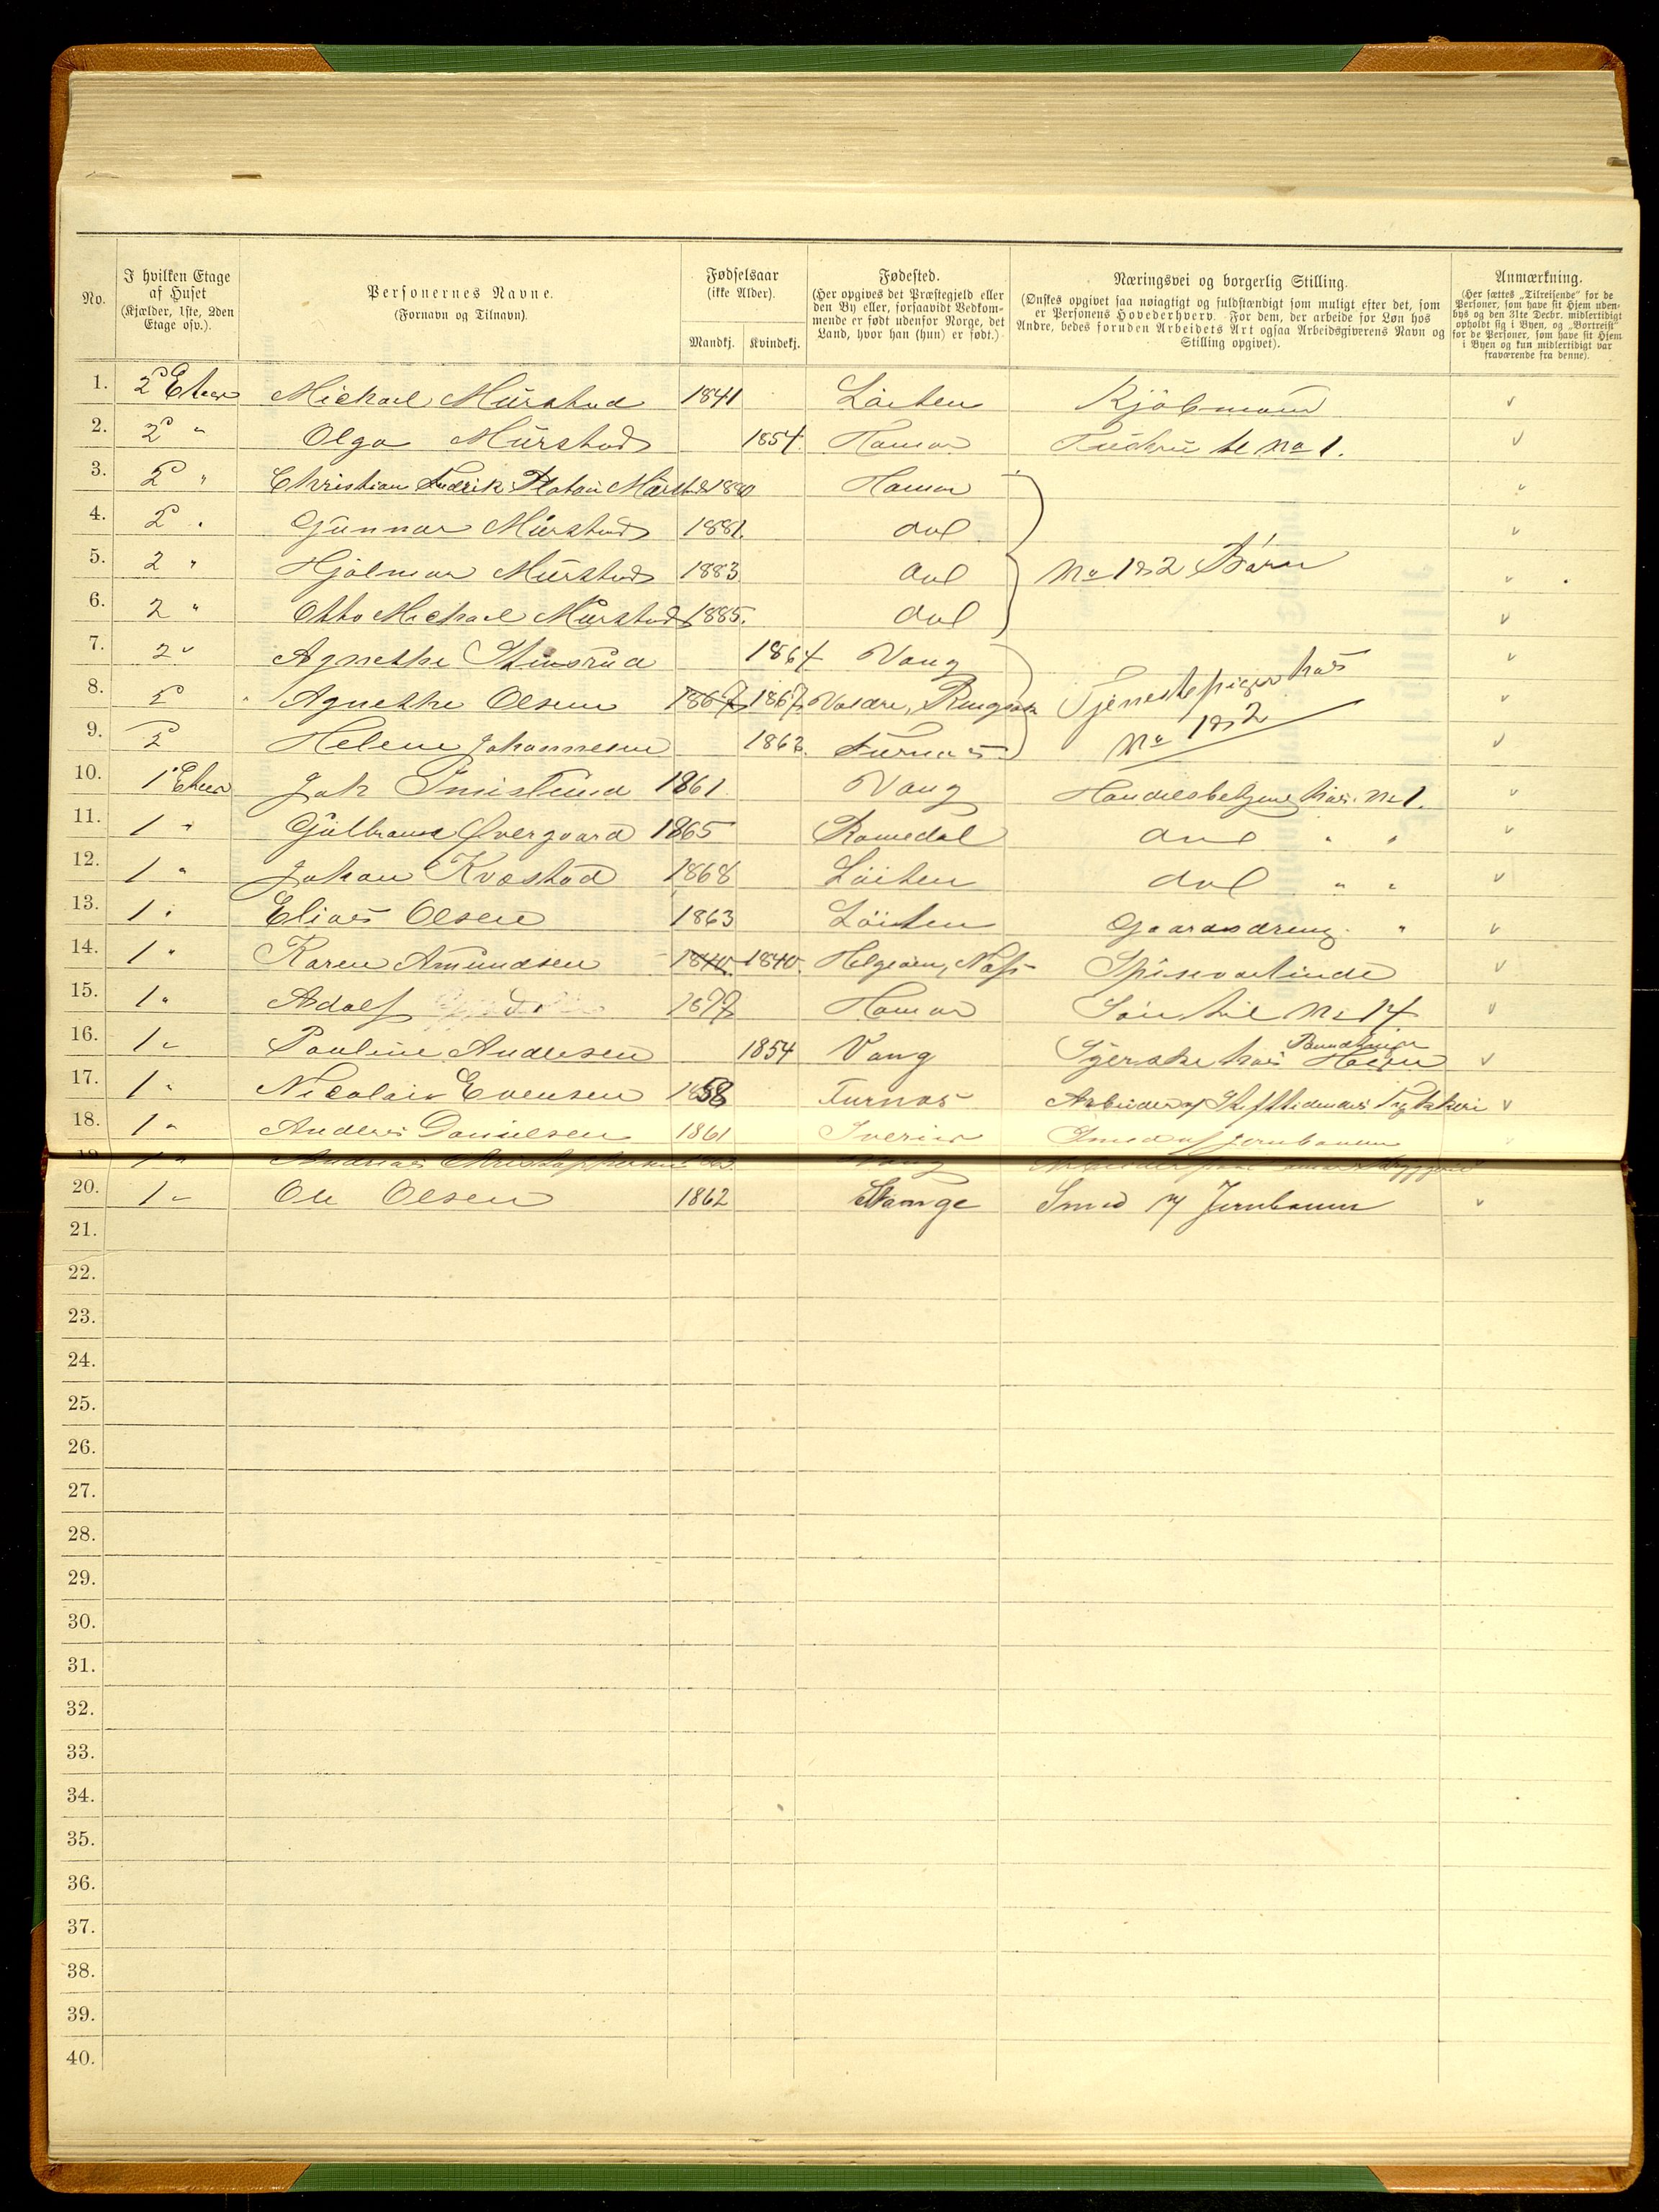 No. I hvilken Etage af Huset (Kjælder, 1ste, 2den Etage osv.). Personernes Navne. (Fornavn og Tilnavn). Fødselsaar (ikke Alder). Mandkj. Kvindekj. Fødested. (Her opgives det Præstegjeld eller den By eller, forsaavidt Vedkommende er født udenfor Norge, det Land, hvor han (hun) er født.) Næringsvei og borgerlig Stilling. (Ønskes opgivet saa nøiagtigt og fuldstændigt som muligt efter det, som er Personens Hovederhverv. For dem, der arbeide for Løn hos Andre, bedes foruden Arbeidets Art ogsaa Arbeidsgiverens Navn og Stilling opgivet). Anmærkning. (Her sættes „Tilreisende" for de Personer, som have sit Hjem udenbys og den 31te Decbr. midlertidigt opholdt sig i Byen, og „Bortreist" for de Personer, som have sit Hjem i Byen og kun midlertidigt var fraværende fra denne).
1. 2 Michael Mürstad 1841 Löiten Kjöbmand
2. 2 " Olga Mürstad 1854 Hamar No 1.
3. 2 " Christian Fredrik 1880 Hamar
4. 2 " Gunnar Mürstad 1881. do
5. 2 " Hjalmar Mürstad 1883 do No 1 & 2 Börn
6. 2 " Otto Michael Mürstad 1885. do
7. 2 " Agnethe Stensrud 1864 Vang Tjenestepiger hos
8. 2 " Agnethe Olsen 1867 1867 Ringsak No 1 & 2
9. 2 Helene Johannesen 1863. Furnæs
10. 1 Etage Joh 1861 Vang Handelsbetjent hos No 1.
11. 1 " Gulbrand Øvergaard 1865 Romedal do " "
12. 1 " Johan Kvæstad 1868 Löiten do " "
13. 1 " Elias Olsen 1863 Löiten Gaardsdreng "
14. 1 " Karen Amundsen 1840 1840. Helgøen, Næs Spisevertinde
15. 1 " Adolf 1877 Hamar Søn til No 14
16. 1 " Pauline Andersen 1854 Vang hos
17. 1 " Nicolai Evensen 1858 Furnæs Trykkeri
18. 1 " Anders Danielsen 1861 Sverige Smed
19. 1 " Andreas Christophersen Vang
20. 1 " Ole Olsen 1862 Stange Smed Jernbanen
21.
22.
23.
24.
25.
26.
27.
28.
29.
30.
31.
32.
33.
34.
35.
36.
37.
38.
39.
40.